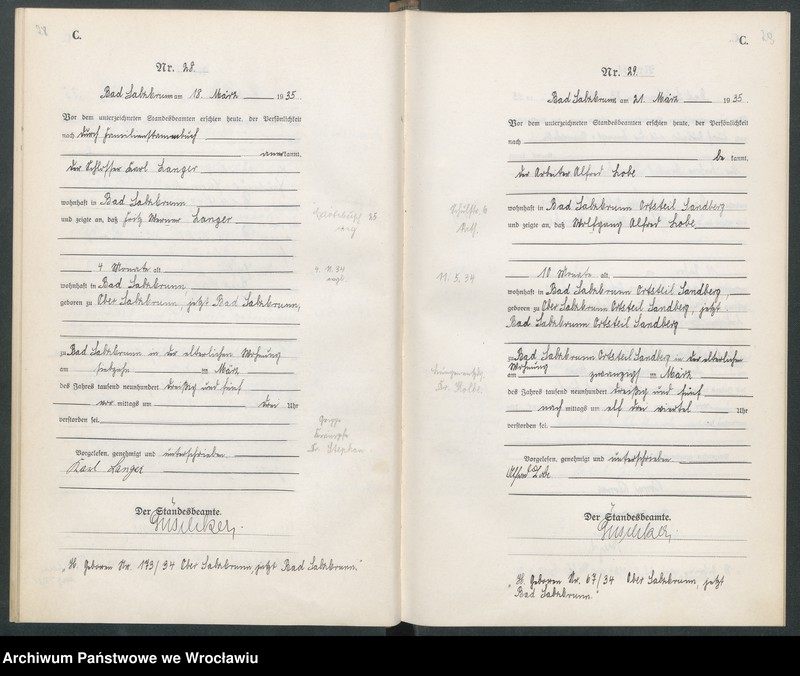 C.
Nr. 28.
Bad Salzbrunn am 18. März 1935
Vor dem unterzeichneten Standesbeamten erschien heute, der Persönlichkeit
nach durch Familienstammbuch
anerkannt,
der Schlosser Karl Langer
wohnhaft in Bad Salzbrunn
und zeigte an, daß Fritz Werner Langer
4 Monate alt
wohnhaft in Bad Salzbrunn,
geboren zu Ober Salzbrunn, jetzt Bad Salzbrunn,
zu Bad Salzbrunn in der elterlichen Wohnung
am sechzehn ten März
des Jahres tausend neunhundert dreißig und fünf
vor mittags um drei Uhr
verstorben sei.
Vorgelesen, genehmigt und unterschrieben
Karl Langer
Der Standesbeamte.
"St. Geboren Nr. 193/34 Ober Salzbrunn, jetzt Bad Salzbrunn."
35
4. 11. 34
Grippe
Dr. Stephan
C.
Nr. 29.
Bad Salzbrunn am 21. März 1935.
Vor dem unterzeichneten Standesbeamten erschien heute, der Persönlichkeit
nach
be kannt,
der Arbeiter Alfred Lobe
wohnhaft in Bad Salzbrunn Ortsteil Sandberg
und zeigte an, daß Wolfgang Alfred Lobe,
10 Monate alt
wohnhaft in Bad Salzbrunn Ortsteil Sandberg,
geboren zu Ober Salzbrunn Ortsteil Sandberg, jetzt
Bad Salzbrunn Ortsteil Sandberg
zu Bad Salzbrunn Ortsteil Sandberg in der elterlichen
Wohnung
am zwanzigsten März
des Jahres tausend neunhundert dreißig und fünf
nach mittags um elf drei viertel Uhr
verstorben sei.
Vorgelesen, genehmigt und unterschrieben
Alfred Lobe
Der Standesbeamte.
"St. Geboren Nr. 67/34 Ober Salzbrunn, jetzt
Bad Salzbrunn."
Schulstr. 6
Kath.
11. 5. 34
Archiwum Państwowe we Wrocławiu